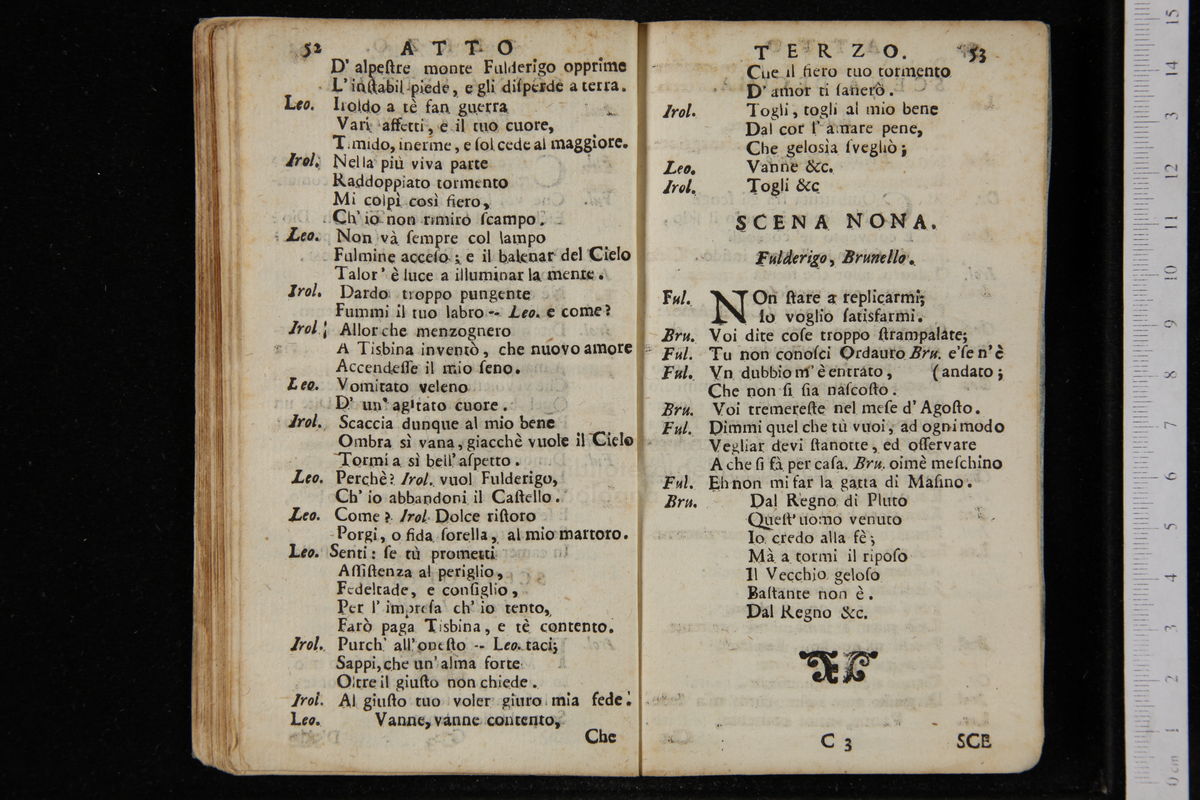 52 ATTO
D' alpeſtre monte Fulderigo opprime
L' inſtabil piede, e gli diſperde a terra.
Leo. Iroldo a tè fan guerra
Vari affetti, e il tuo cuore,
Timido, inerme, e ſol cede al maggiore.
Irol. Nella più viva parte
Raddoppiato tormento
Mi colpì così fiero,
Ch' io non rimiro ſcampo.
Leo. Non và ſempre col lampo
Fulmine acceſo; e il balenar del Cielo
Talor' è luce a illuminar la mente.
Irol. Dardo troppo pungente
Fummi il tuo labro -- Leo. e come?
Irol. Allor che menzognero
A Tisbina inventò, che nuovo amore
Accendeſſe il mio ſeno.
Leo. Vomitato veleno
D' un' agitato cuore.
Irol. Scaccia dunque al mio bene
Ombra sì vana, giacchè vuole il Cielo
Tormi a sì bell' aſpetto.
Leo. Perchè? Irol. vuol Fulderigo,
Ch' io abbandoni il Caſtello.
Leo. Come? Irol. Dolce riſtoro
Porgi, o fida ſorella, al mio martoro.
Leo. Senti: ſe tù prometti
Aſſiſtenza al periglio,
Fedeltade, e conſiglio,
Per l' impreſa ch' io tento,
Farò paga Tisbina, e tè contento.
Irol. Purch' all' oneſto -- Leo. taci;
Sappi, che un' alma forte
Oltre il giuſto non chiede.
Irol. Al giuſto tuo voler giuro mia fede.
Leo. Vanne, vanne contento,
Che
TERZO. 53
Che il fiero tuo tormento
D' amor ti ſanerò.
Irol. Togli, togli al mio bene
Dal cor l' amare pene,
Che gelosìa ſvegliò;
Leo. Vanne &c.
Irol. Togli &c
SCENA NONA.
Fulderigo, Brunello.
Ful. NOn ſtare a replicarmi;
Io voglio ſatisfarmi.
Bru. Voi dite coſe troppo ſtrampalate;
Ful. Tu non conoſci Ordauro Bru. e'ſe n'è
Ful. Vn dubbio m' è entrato, (andato;
Che non ſi ſia naſcoſto.
Bru. Voi tremereſte nel meſe d' Agoſto.
Ful. Dimmi quel che tù vuoi, ad ogni modo
Vegliar devi ſtanotte, ed oſſervare
A che ſi fà per caſa. Bru. oimè meſchino
Ful. Eh non mi far la gatta di Maſino.
Bru. Dal Regno di Pluto
Queſt' uomo venuto
Io credo alla fè;
Mà a tormi il ripoſo
Il Vecchio geloſo
Baſtante non è.
Dal Regno &c.
C 3 SCE